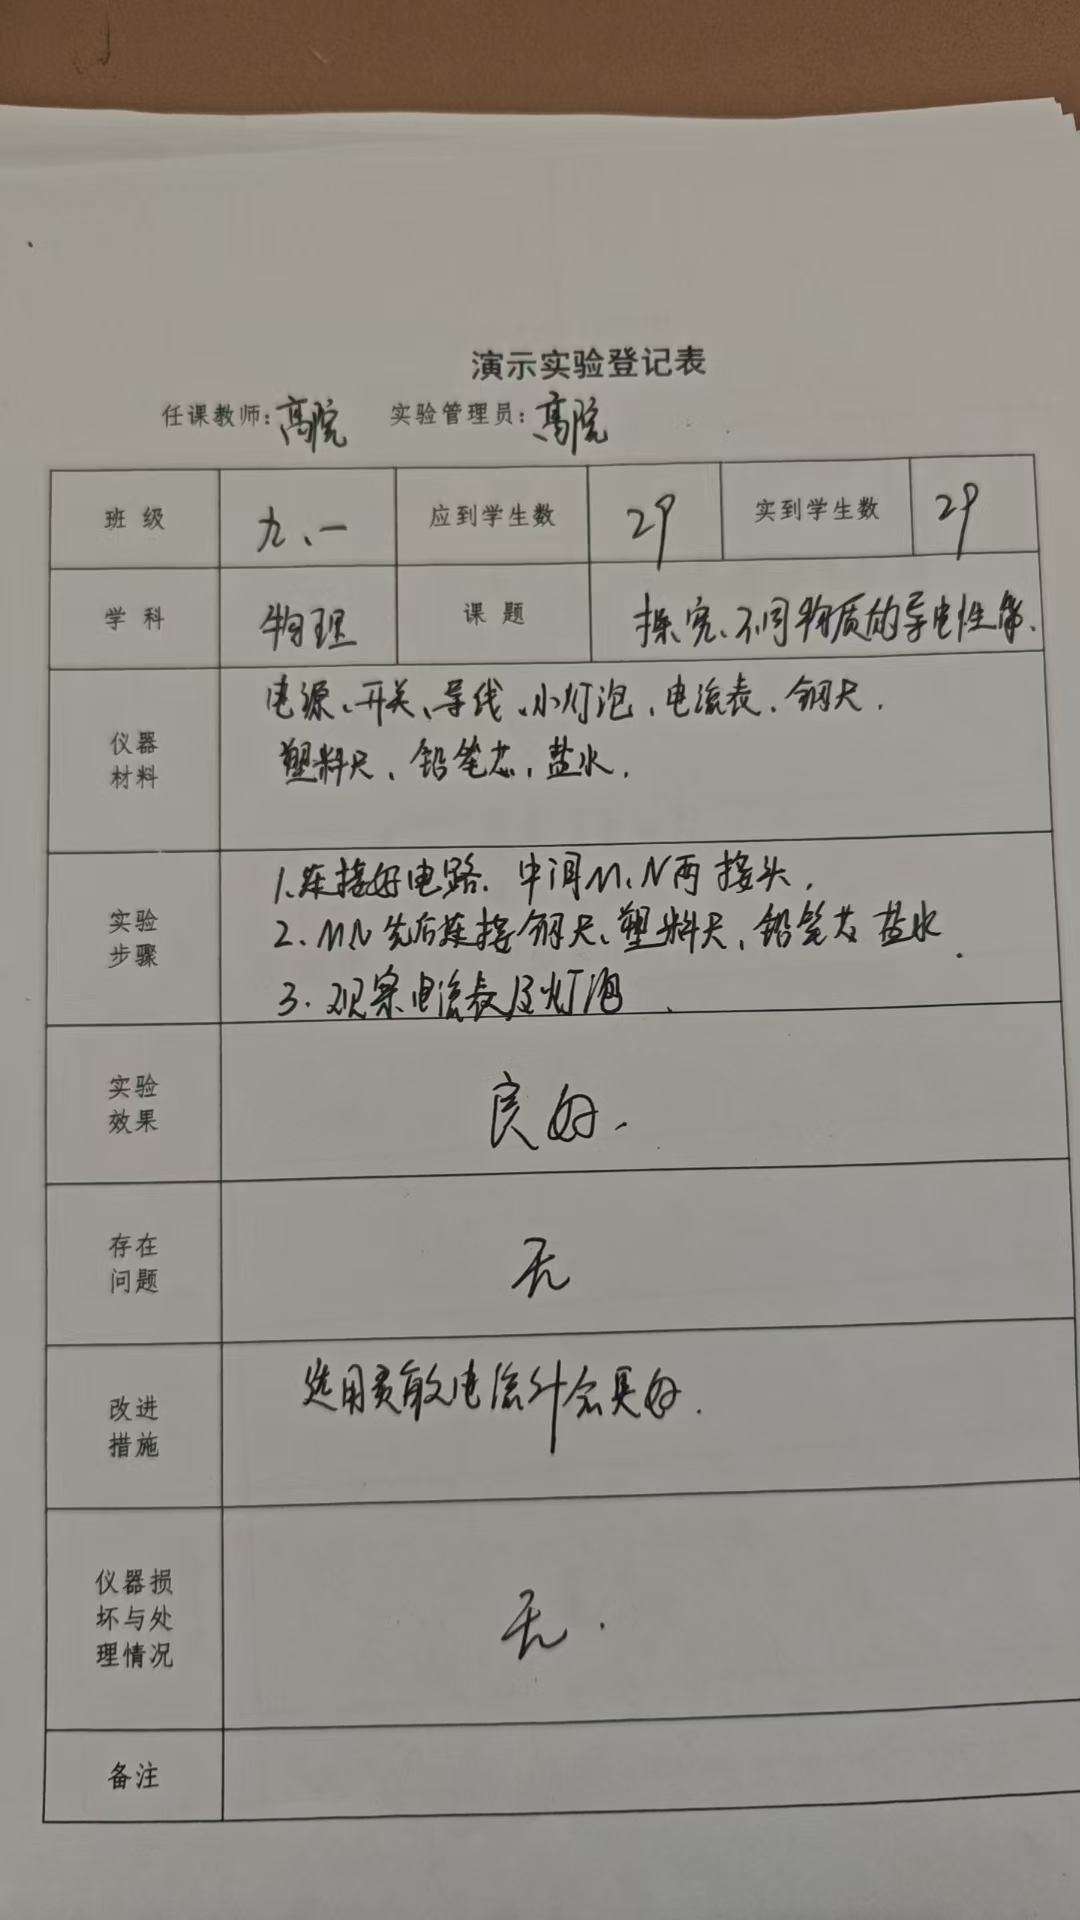 演示实验登记表
任课教师：高院 实验管理员：高院
班级 九、一 应到学生数 29 实到学生数 29
学科 物理 课题 探究不同物质的导电性能.
仪器
材料
电源、开关、导线、小灯泡、电流表、钢尺、
塑料尺、铅笔芯、盐水.
实验
步骤
1.连接好电路、中间M、N两接头.
2、MN先后连接钢尺、塑料尺、铅笔芯 盐水.
3. 观察电流表及灯泡.
实验
效果
良好.
存在
问题
无
改进
措施
选用灵敏电流计会更好.
仪器损
坏与处
理情况
无.
备注